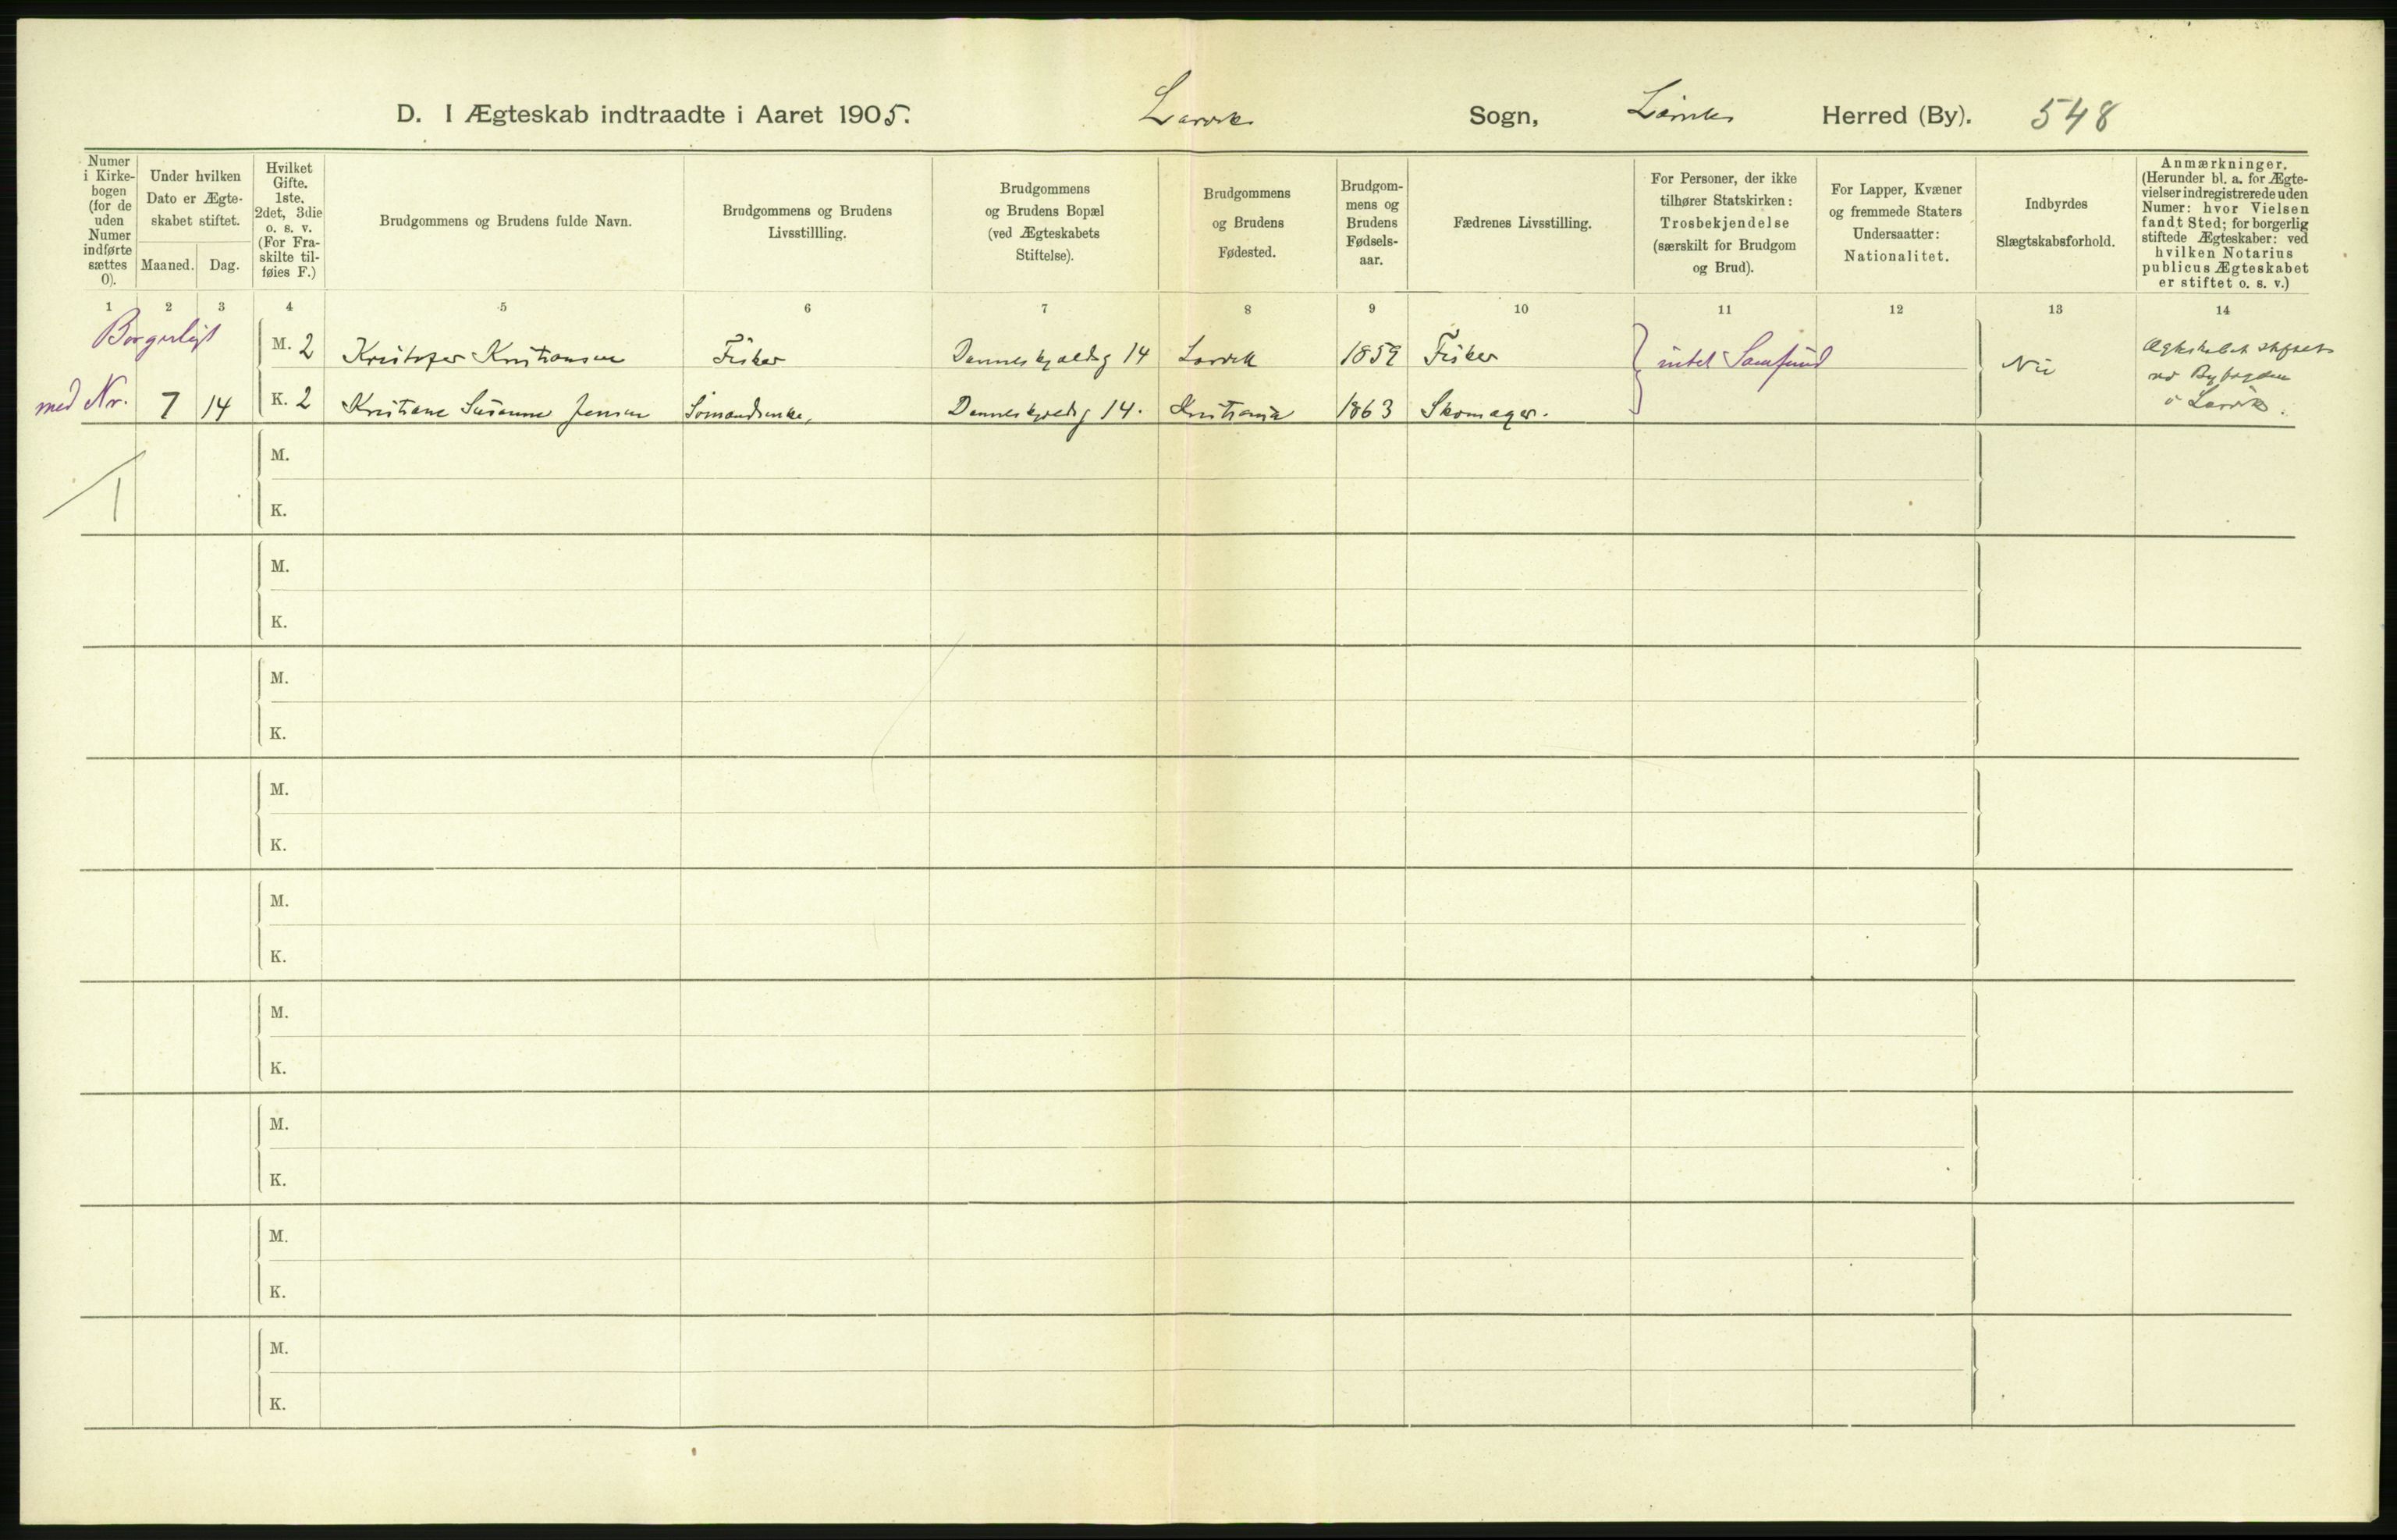 D. I Ægteskab indtraadte i Aaret 1905. Larvik Sogn, Larvik Herred (By). 548
Numer i Kirke- bogen (for de uden Numer indførte sættes 0).
Under hvilken Dato er Ægte- skabet stiftet.
Maaned. Dag.
Hvilket Gifte. 1ste. 2det, 3die o. s. v. (For Fra- skilte til- føies F.)
Brudgommens og Brudens fulde Navn.
Brudgommens og Brudens Livsstillling.
Brudgommens og Brudens Bopæl (ved Ægteskabets Stiftelse).
Brudgommens og Brudens Fødested.
Brudgom- mens og Brudens Fødsels- aar.
Fædrenes Livsstilling.
For Personer, der ikke tilhører Statskirken: Trosbekjendelse (særskilt for Brudgom og Brud).
For Lapper, Kvæner og fremmede Staters Undersaatter: Nationalitet.
Indbyrdes Slægtskabsforhold.
Anmærkninger. (Herunder bl. a. for Ægte- vielser indregistrerede uden Numer: hvor Vielsen fandt Sted; for borgerlig stiftede Ægteskaber: ved hvilken Notarius publicus Ægteskabet er stiftet o. s. v.)
1 2 3 4 5 6 7 8 9 10 11 12 13 14
Borgerligt
M. 2 Kristofer Kristiansen Fisker Danneskjoldsg 14 Larvik 1859 Fisker intet Samfund Nei
Ægteskabet stiftet
ved Byfogden
i Larvik.
med Nr. 7 14 K. 2 Kristiane Susanne Jensen Sømandsenke, Danneskjoldsg 14. Kristiania 1863 Skomager.
1
M.
K.
M.
K.
M.
K.
M.
K.
M.
K.
M.
K.
M.
K.
M.
K.
M.
K.